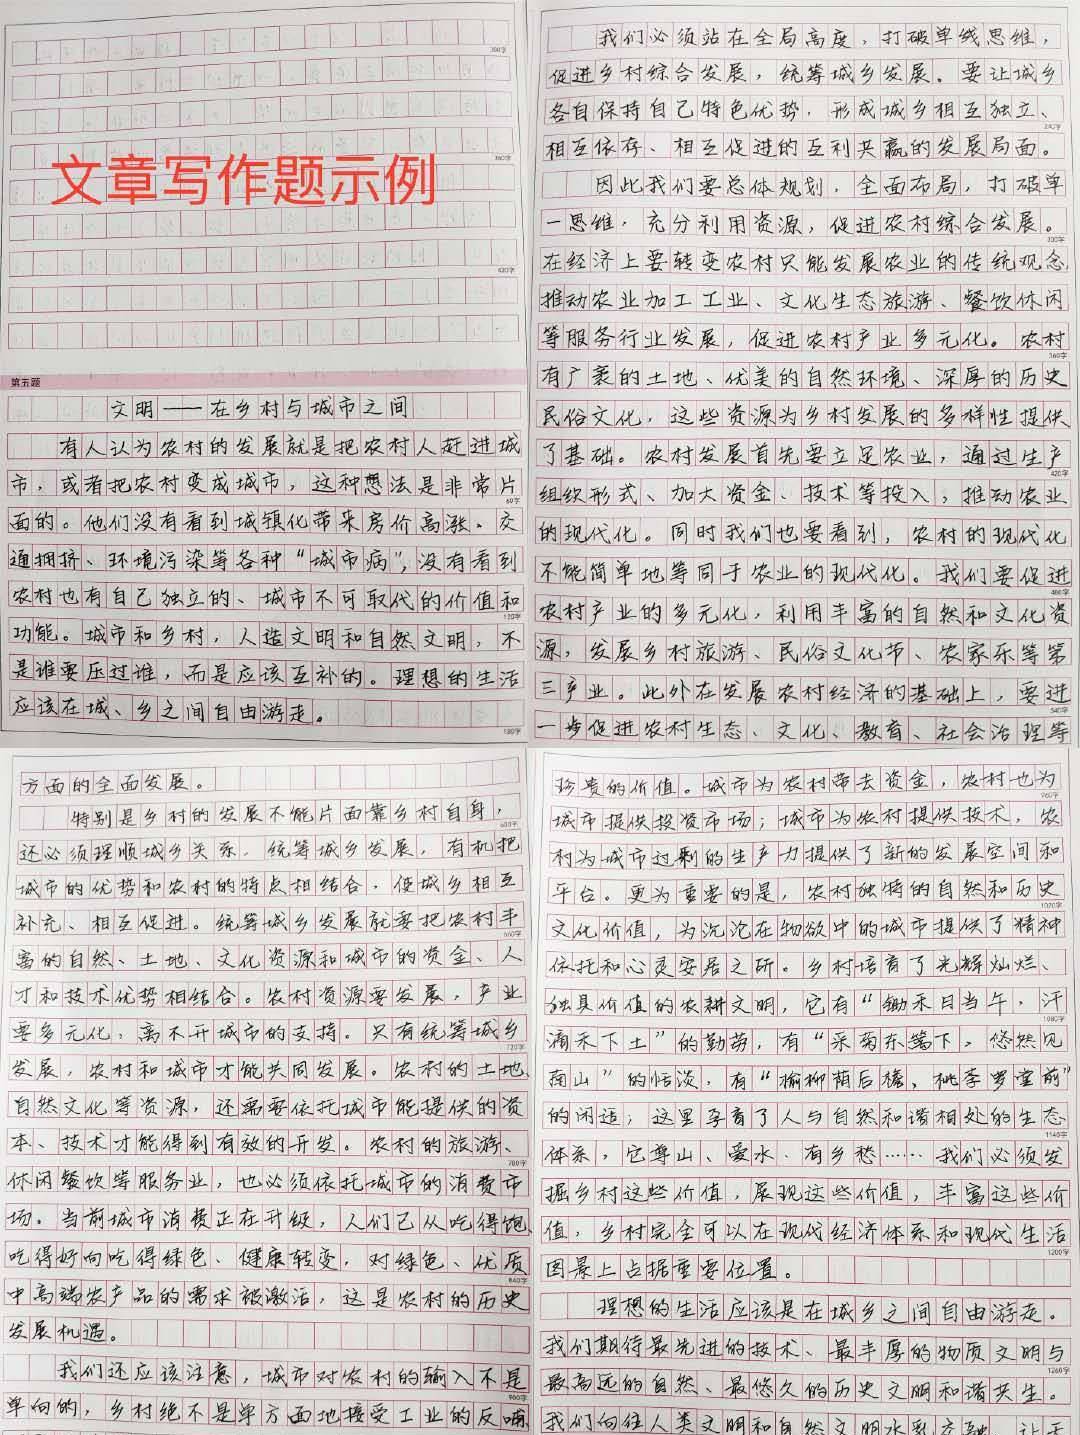 300字
360字
文章写作题示例
420字
第五题
文明——在乡村与城市之间
有人认为农村的发展就是把农村人赶进城
市，或者把农村变成城市，这种想法是非常片
60字
面的。他们没有看到城镇化带来房价高涨、交
通拥挤、环境污染等各种“城市病”，没有看到
农村也有自己独立的、城市不可取代的价值和
120字
功能。城市和乡村，人造文明和自然文明，不
是谁要压过谁，而是应该互补的。理想的生活
应该在城、乡之间自由游走。
180字
我们必须站在全局高度，打破单线思维，
促进乡村综合发展，统筹城乡发展。要让城乡
各自保持自己特色优势，形成城乡相互独立、
240字
相互依存、相互促进的互利共赢的发展局面。
因此我们要总体规划，全面布局，打破单
一思维，充分利用资源，促进农村综合发展。
300字
在经济上要转变农村只能发展农业的传统观念
推动农业加工工业、文化生态旅游、餐饮休闲
等服务行业发展，促进农村产业多元化。农村
360字
有广袤的土地、优美的自然环境、深厚的历史
民俗文化，这些资源为乡村发展的多样性提供
了基础。农村发展首先要立足农业，通过生产
420字
组织形式、加大资金、技术等投入，推动农业
的现代化。同时我们也要看到，农村的现代化
不能简单地等同于农业的现代化。我们要促进
480字
农村产业的多元化，利用丰富的自然和文化资
源，发展乡村旅游、民俗文化节、农家乐等第
三产业。此外在发展农村经济的基础上，要进
540字
一步促进农村生态、文化、教育、社会治理等
方面的全面发展。
特别是乡村的发展不能片面靠乡村自身，
600字
还必须理顺城乡关系，统筹城乡发展，有机把
城市的优势和农村的特点相结合，使城乡相互
补充、相互促进。统筹城乡发展就要把农村丰
660字
富的自然、土地、文化资源和城市的资金、人
才和技术优势相结合。农村资源要发展，产业
要多元化，离不开城市的支持。只有统筹城乡
720字
发展，农村和城市才能共同发展。农村的土地、
自然文化等资源，还需要依托城市能提供的资
本、技术才能得到有效的开发。农村的旅游、
780字
休闲餐饮等服务业，也必须依托城市的消费市
场。当前城市消费正在升级，人们已从吃得饱、
吃得好向吃得绿色、健康转变，对绿色、优质
840字
中高端农产品的需求被激活，这是农村的历史
发展机遇。
我们还应该注意，城市对农村的输入不是
900字
单向的，乡村绝不是单方面地接受工业的反哺，
珍贵的价值。城市为农村带去资金，农村也为
960字
城市提供投资市场；城市为农村提供技术，农
村为城市过剩的生产力提供了新的发展空间和
平台。更为重要的是，农村独特的自然和历史
1020字
文化价值，为沉沦在物欲中的城市提供了精神
依托和心灵安居之所。乡村培育了光辉灿烂、
独具价值的农耕文明，它有“锄禾日当午，汗
1080字
滴禾下土”的勤劳，有“采菊东篱下，悠然见
南山”的恬淡，有“榆柳荫后檐，桃李罗堂前”
的闲适；这里孕育了人与自然和谐相处的生态
1140字
体系，它尊山、爱水、有乡愁……我们必须发
掘乡村这些价值，展现这些价值，丰富这些价
值，乡村完全可以在现代经济体系和现代生活
1200字
图景上占据重要位置。
理想的生活应该是在城乡之间自由游走。
我们期待最先进的技术、最丰厚的物质文明与
1260字
最高远的自然、最悠久的历史文明和谐共生。
我们向往人类文明和自然文明水乳交融，让天